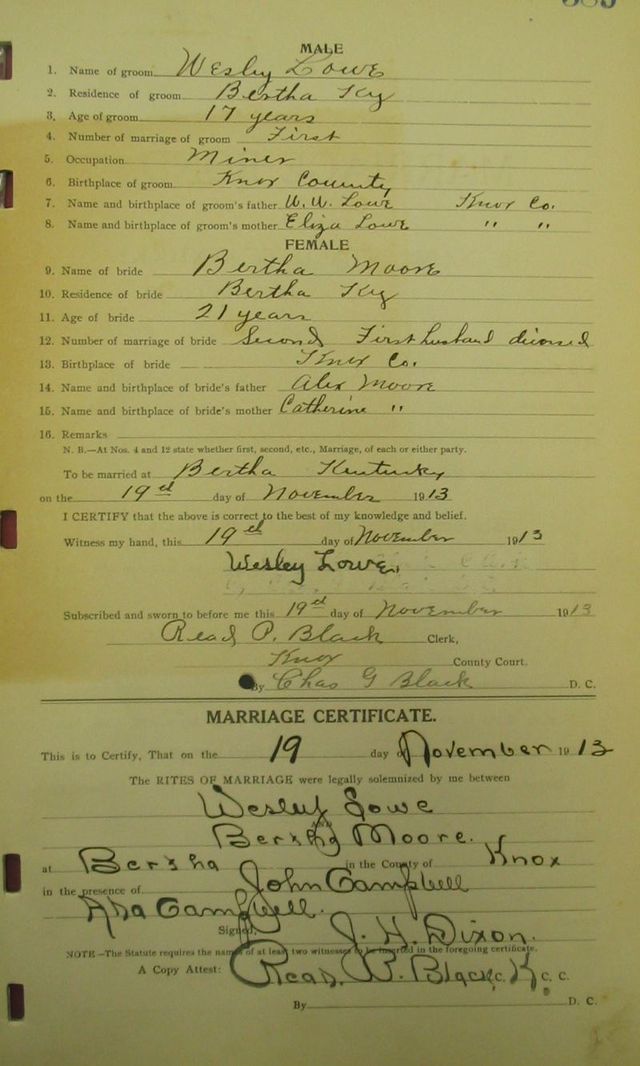 MALE
1. Name of groom Wesley Lowe
2. Residence of groom Bertha Ky
3. Age of groom 17 years
4. Number of marriage of groom First
5. Occupation Miner
6. Birthplace of groom Knox County
7. Name and birthplace of groom's father W. W. Lowe Knox Co.
8. Name and birthplace of groom's mother Eliza Lowe " "
FEMALE
9. Name of bride Bertha Moore
10. Residence of bride Bertha Ky
11. Age of bride 21 years
12. Number of marriage of bride Second First husband divorced
13. Birthplace of bride Knox Co.
14. Name and birthplace of bride's father Alex Moore
15. Name and birthplace of bride's mother Catherine "
16. Remarks
N. B.—At Nos. 4 and 12 state whether first, second, etc., Marriage, of each or either party.
To be married at Bertha Kentucky
on the 19th day of November 1913
I CERTIFY that the above is correct to the best of my knowledge and belief.
Witness my hand, this 19th day of November 1913
Wesley Lowe
Subscribed and sworn to before me this 19th day of November 1913
Read P. Black Clerk,
Knox County Court.
By Chas G Black D. C.
MARRIAGE CERTIFICATE.
This is to Certify, That on the 19 day of November 1913
The RITES OF MARRIAGE were legally solemnized by me between
Wesley Lowe
AND
Bertha Moore.
at Bertha in the County of Knox
in the presence of John Campbell
Ada Campbell.
Signed, J. H. Dixon.
NOTE—The Statute requires the names of at least two witnesses to be inserted in the foregoing certificate.
A Copy Attest: Read P. Black, C. K. C. C.
By D. C.